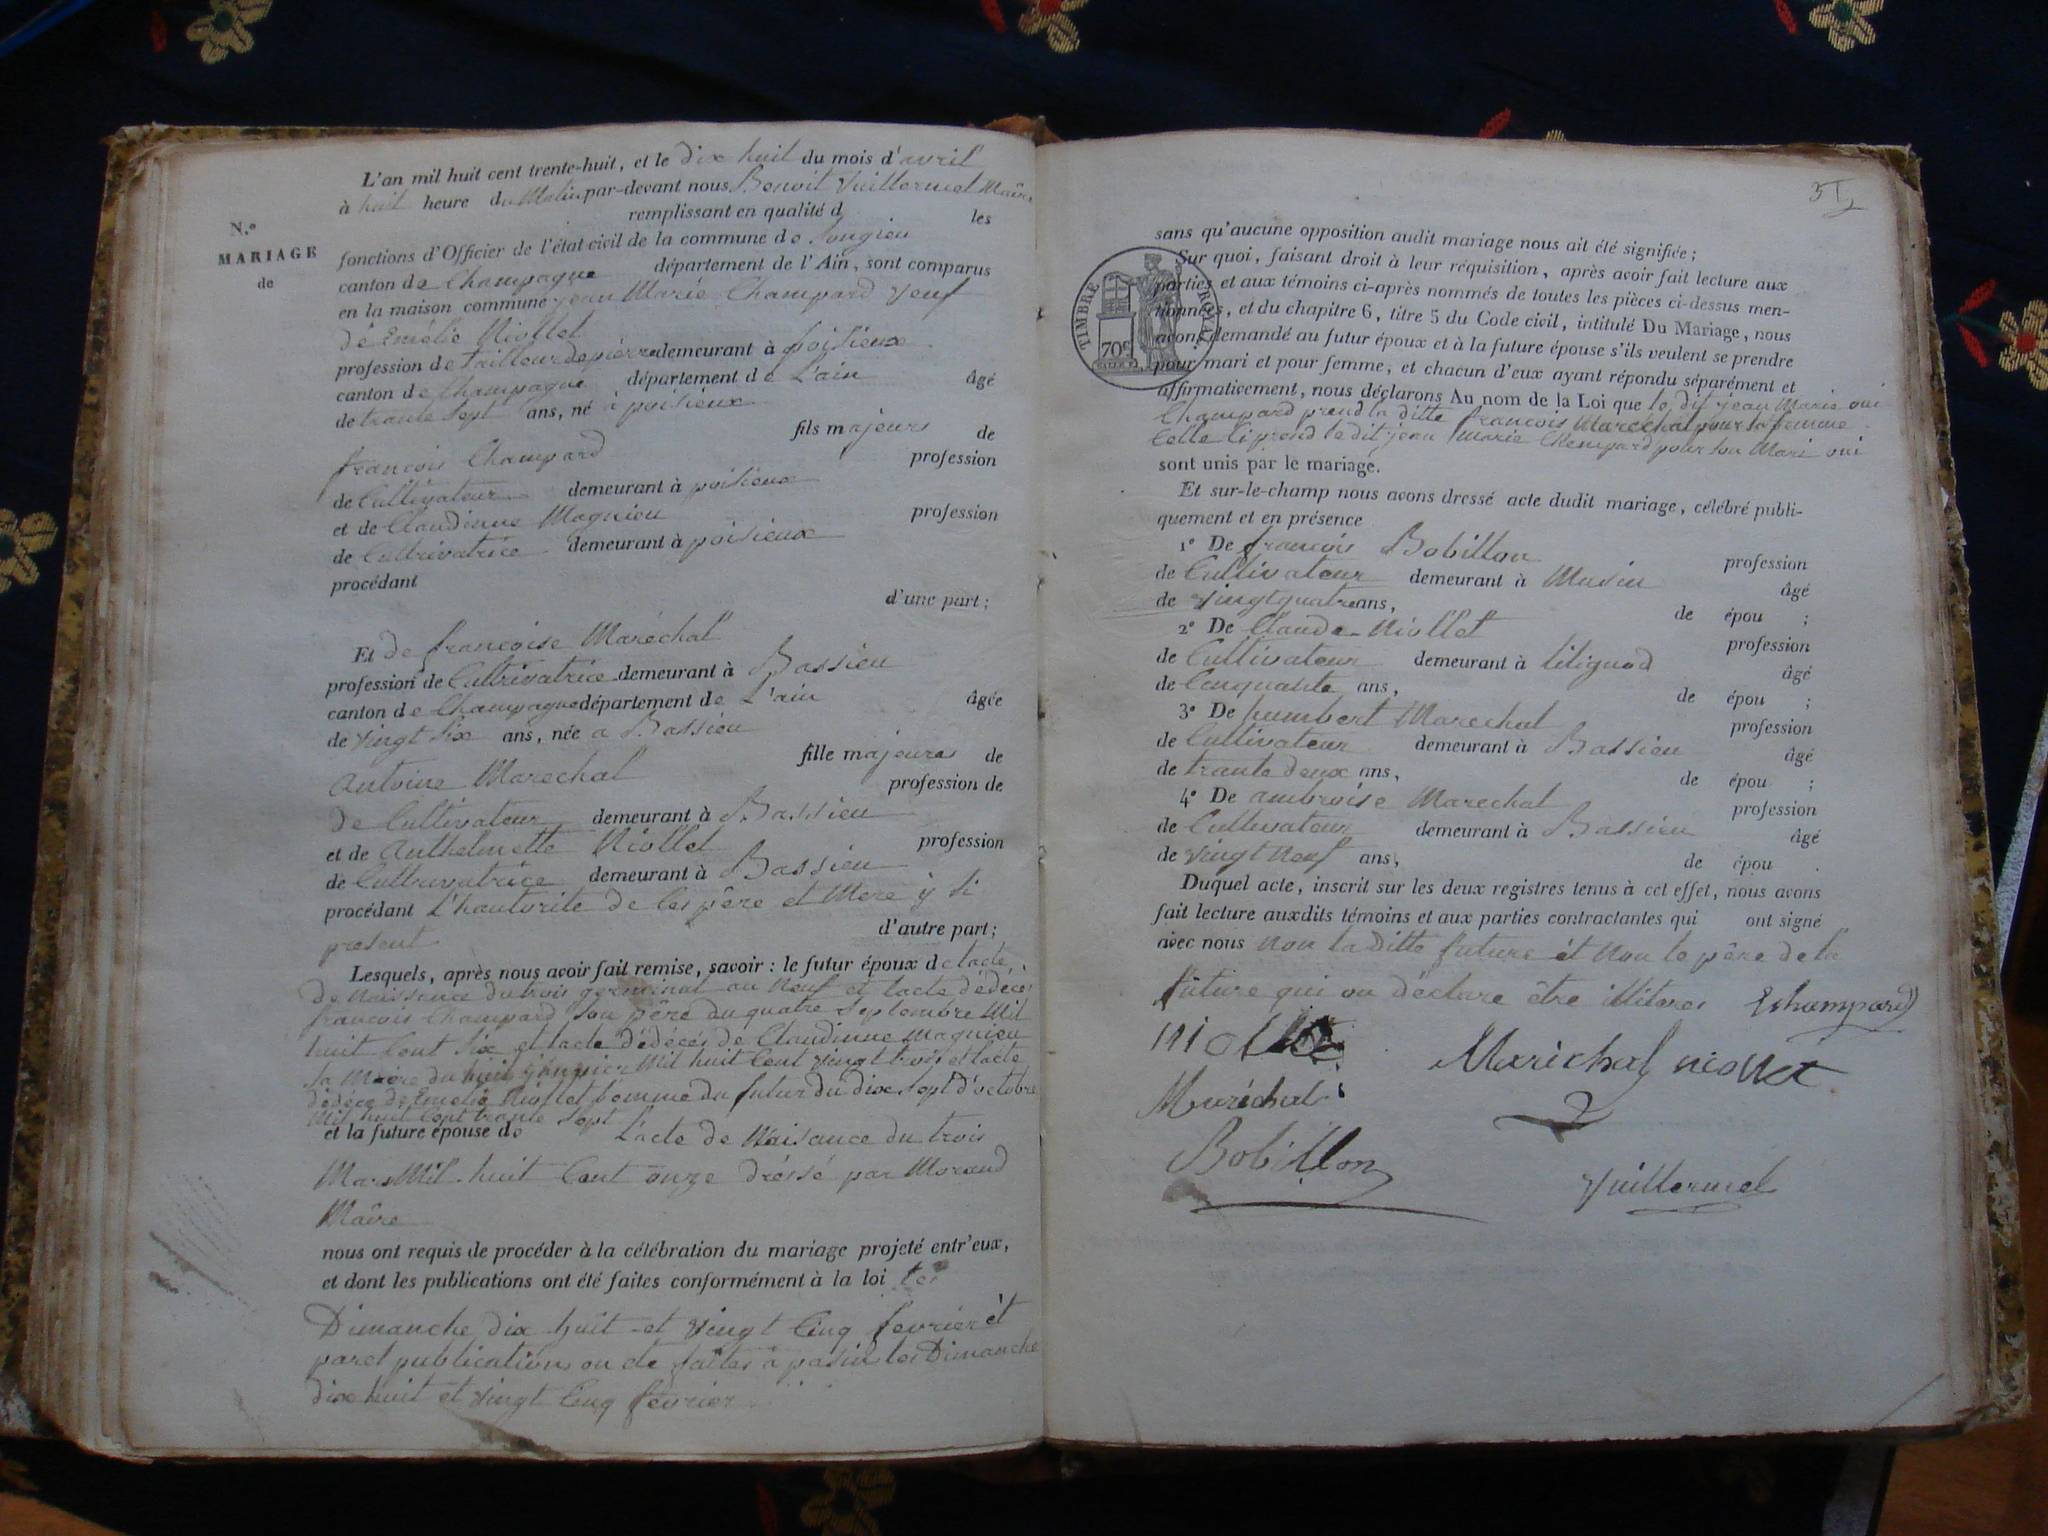 L'an mil huit cent trente-huit, et le dix huit du mois d'avril
à huit heure du Matin par-devant nous Benoit Vuillermet Maire
remplissant en qualité d les
fonctions d'Officier de l'état civil de la commune de Songieu
canton de Champagne département de l'Ain, sont comparus
en la maison commune jean Marie Champard veuf
de Emélie Niollet
profession de tailleur de pierre demeurant à poisieux
canton de Champagne département de L'ain âgé
de trante sept ans, né à poisieux
fils majeurs de
francois Champard profession
de Cultivateur demeurant à poisieux
et de Claudinne Magnieu profession
de Cultivatrice demeurant à poisieux
procédant
d'une part;
N.º
MARIAGE
de
Et de françoise Maréchal
profession de Cultivatrice demeurant à Bassieu
canton de Champagne département de L'ain âgée
de vingt six ans, née a Bassieu
fille majeures de
Antoine Marechal profession de
de Cultivateur demeurant à Bassieu
et de Anthelmette Niollet profession
de Cultivatrice demeurant à Bassieu
procédant L'hautorite de ces père et Mere y si
present d'autre part;
Lesquels, après nous avoir fait remise, savoir: le futur époux de lacte
de Naissance du trois germinal au Neuf et lacte dédécè
francois Champard son père du quatre Septembre Mil
huit Cent Six et lacte dédécés de Claudinne magnieu
sa Mère du huit janvier Mil huit Cent vingt trois et lacte
dédéce de Emelie Niollet femme du futur du dix sept d'octobre
Mil huit Cent trante sept
et la future épouse de L'acte de Naisance du trois
Mars Mil huit Cent onze dréssé par Morand
Maire
nous ont requis de procéder à la célébration du mariage projeté entr'eux,
et dont les publications ont été faites conformément à la loi les
Dimanche dix huit et vingt Cinq fevrier èt
paret publication on ete faites à les Dimanche
dix huit et vingt Cinq fevrier
sans qu'aucune opposition audit mariage nous ait été signifiée;
Sur quoi, faisant droit à leur réquisition, après avoir fait lecture aux
parties et aux témoins ci-après nommés de toutes les pièces ci-dessus men-
tionnées, et du chapitre 6, titre 5 du Code civil, intitulé Du Mariage, nous
avons demandé au futur époux et à la future épouse s'ils veulent se prendre
pour mari et pour femme, et chacun d'eux ayant répondu séparément et
affirmativement, nous déclarons Au nom de la Loi que le dit jean Marie oui
Champard prend la ditte francois Marechal pour sa femme
Celle Ci prend le dit jean marie Champard pour son Mari oui
sont unis par le mariage.
TIMBRE ROYAL
70c
Et sur-le-champ nous avons dressé acte dudit mariage, célébré publi-
quement et en présence
1º De françois Bobillon profession
de Cultivateur demeurant à Musin âgé
de vingt quatre ans, de épou ;
2º De Claude Niollet profession
de Cultivateur demeurant à litignod âgé
de Cenquante ans, de épou ;
3º De humbert Marechal profession
de Cultivateur demeurant à Bassieu âgé
de trante deux ans, de épou ;
4º De ambroise Marechal profession
de Cultivateur demeurant à Bassieu âgé
de vingt Neuf ans, de épou .
Duquel acte, inscrit sur les deux registres tenus à cet effet, nous avons
fait lecture auxdits témoins et aux parties contractantes qui ont signé
avec nous Non la ditte future ét Non le père de la
future qui on déclare être illiteres Champard
niollet
Marichal niollet
Maréchal
Bobillon
Vuillermet